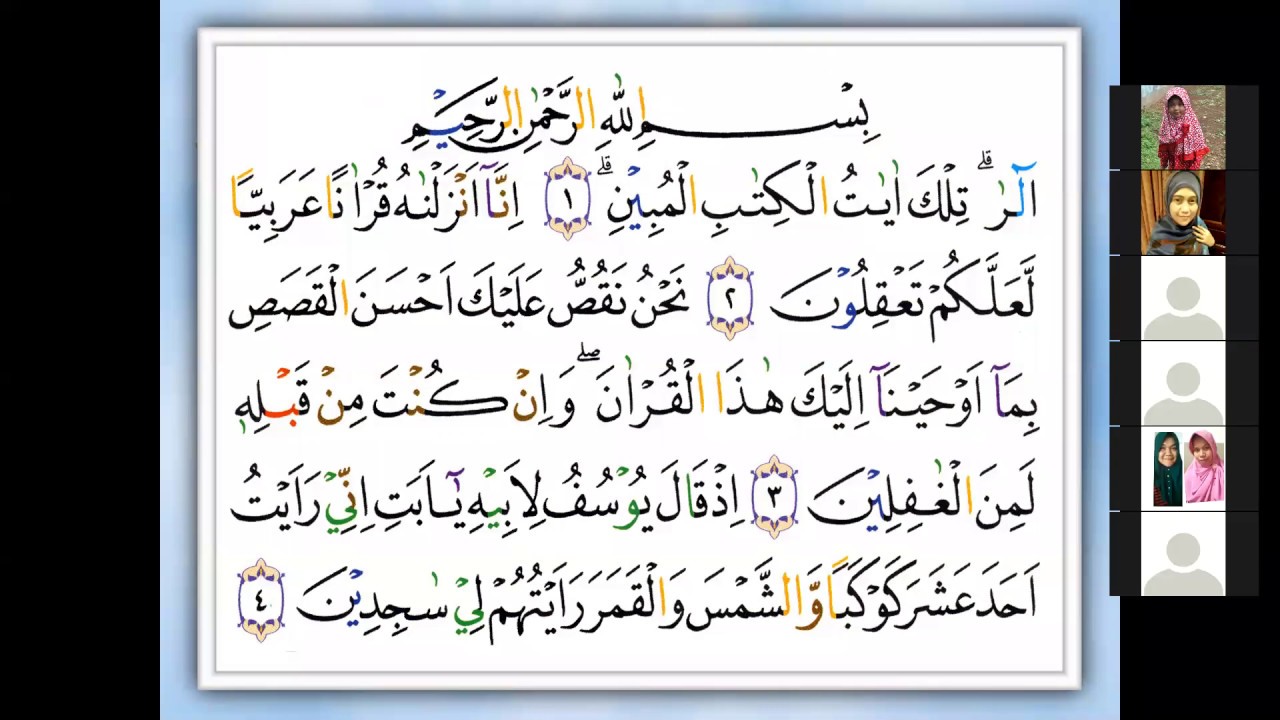 بِسْمِ اللّٰهِ الرَّحْمٰنِ الرَّحِيْمِ
الۤرٰ ۗ تِلْكَ اٰيٰتُ الْكِتٰبِ الْمُبِيْنِ ۗ ١ اِنَّآ اَنْزَلْنٰهُ قُرْاٰنًا عَرَبِيًّا
لَّعَلَّكُمْ تَعْقِلُوْنَ ٢ نَحْنُ نَقُصُّ عَلَيْكَ اَحْسَنَ الْقَصَصِ
بِمَآ اَوْحَيْنَآ اِلَيْكَ هٰذَا الْقُرْاٰنَ ۖ وَاِنْ كُنْتَ مِنْ قَبْلِهٖ
لَمِنَ الْغٰفِلِيْنَ ٣ اِذْ قَالَ يُوْسُفُ لِاَبِيْهِ يٰٓاَبَتِ اِنِّيْ رَاَيْتُ
اَحَدَ عَشَرَ كَوْكَبًا وَّالشَّمْسَ وَالْقَمَرَ رَاَيْتُهُمْ لِيْ سٰجِدِيْنَ ٤